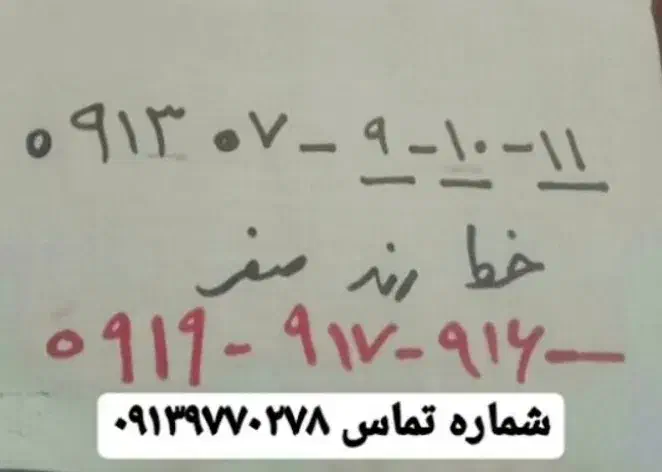 ۰۹۱۳ ۰۷ - ۹ - ۱۰ - ۱۱
خط رند صفر
۰۹۱۹ - ۹۱۷ - ۹۱۶ -
شماره تماس ۰۹۱۳۹۷۷۰۲۷۸